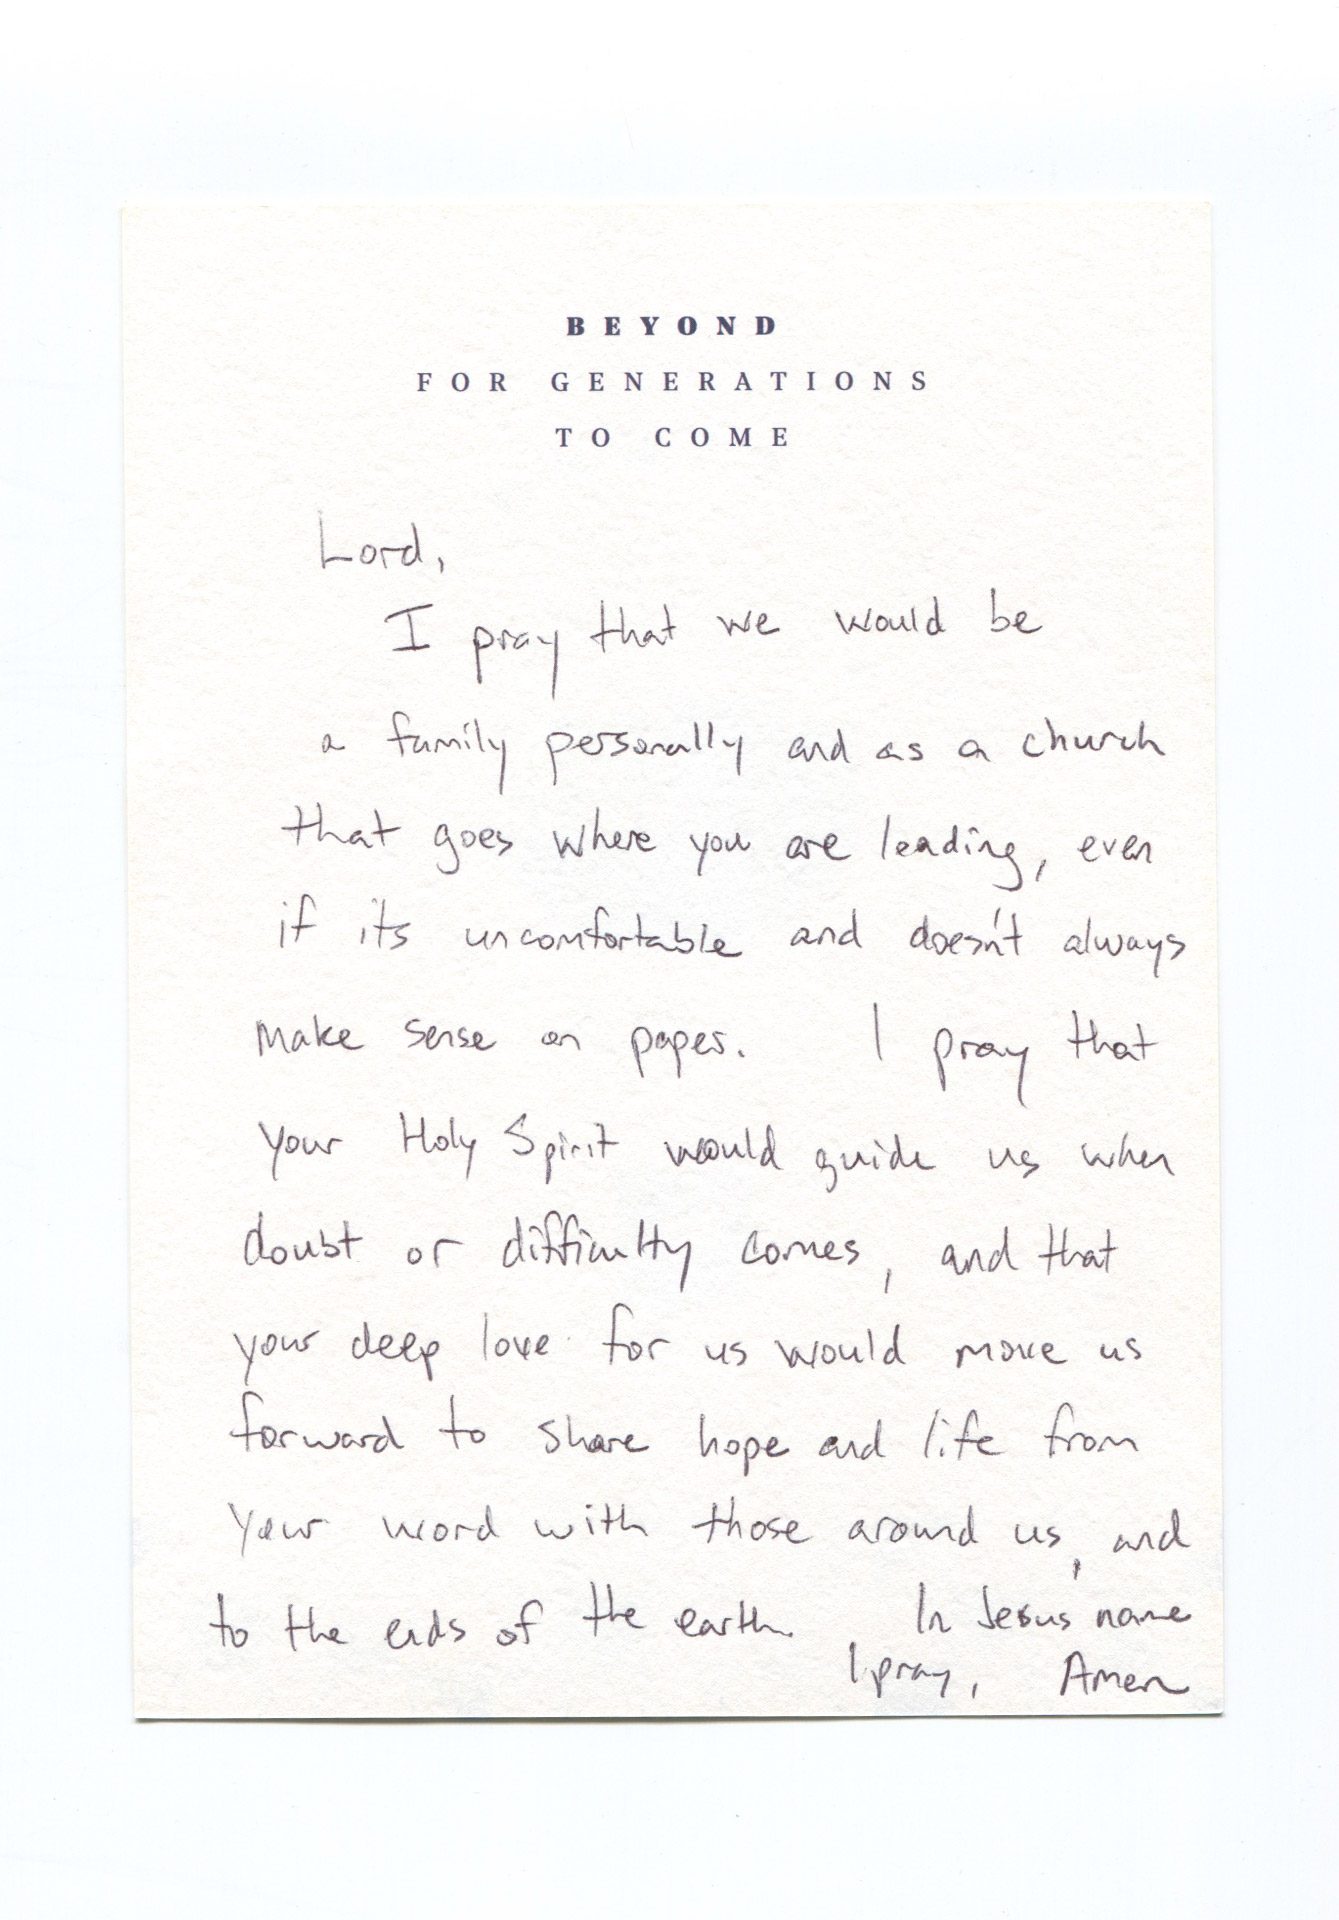 BEYOND
FOR GENERATIONS
TO COME
Lord,
I pray that we would be
a family personally and as a church
that goes where you are leading, even
if its uncomfortable and doesn't always
make sense on paper. I pray that
your Holy Spirit would guide us when
doubt or difficulty comes, and that
your deep love for us would move us
forward to share hope and life from
your word with those around us, and
to the ends of the earth. In Jesus name
I pray, Amen